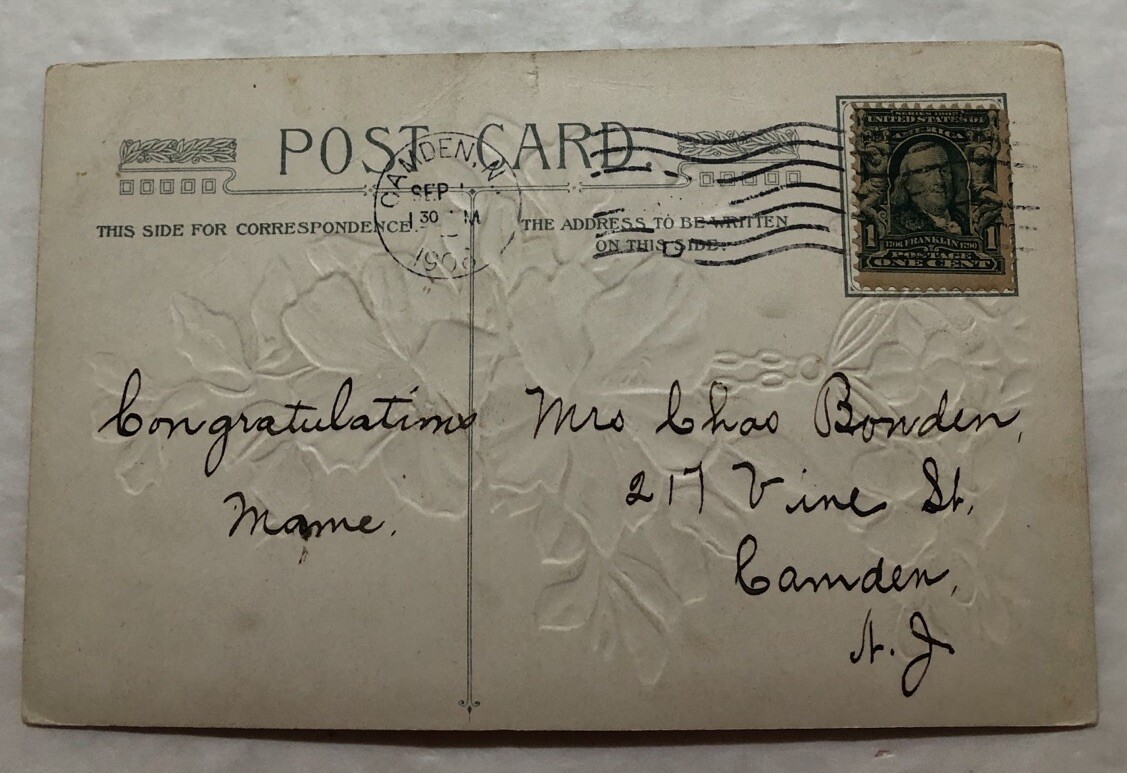 POST CARD.
THIS SIDE FOR CORRESPONDENCE.
THE ADDRESS TO BE WRITTEN
ON THIS SIDE.
CAMDEN, N.
SEP
30 M
SERIES 1902
UNITED STATES OF
AMERICA
1 1706 FRANKLIN 1790 1
POSTAGE
ONE CENT
Congratulations
Mame.
Mrs Chas Bowden,
217 Vine St.
Camden,
N. J